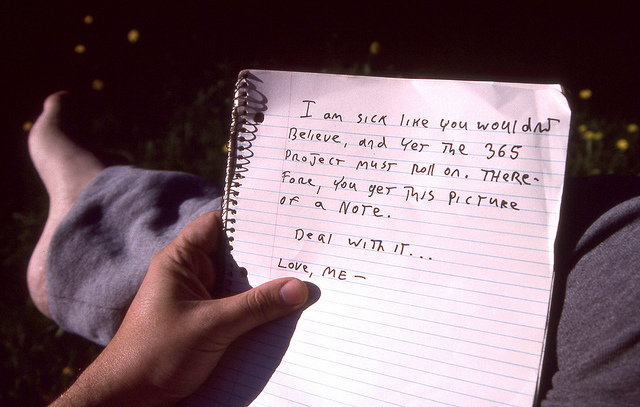 I am sick like you wouldnt
Believe, and yet the 365
Project must roll on. There-
fore, you get this picture
of a note.
Deal with it...
Love, me -